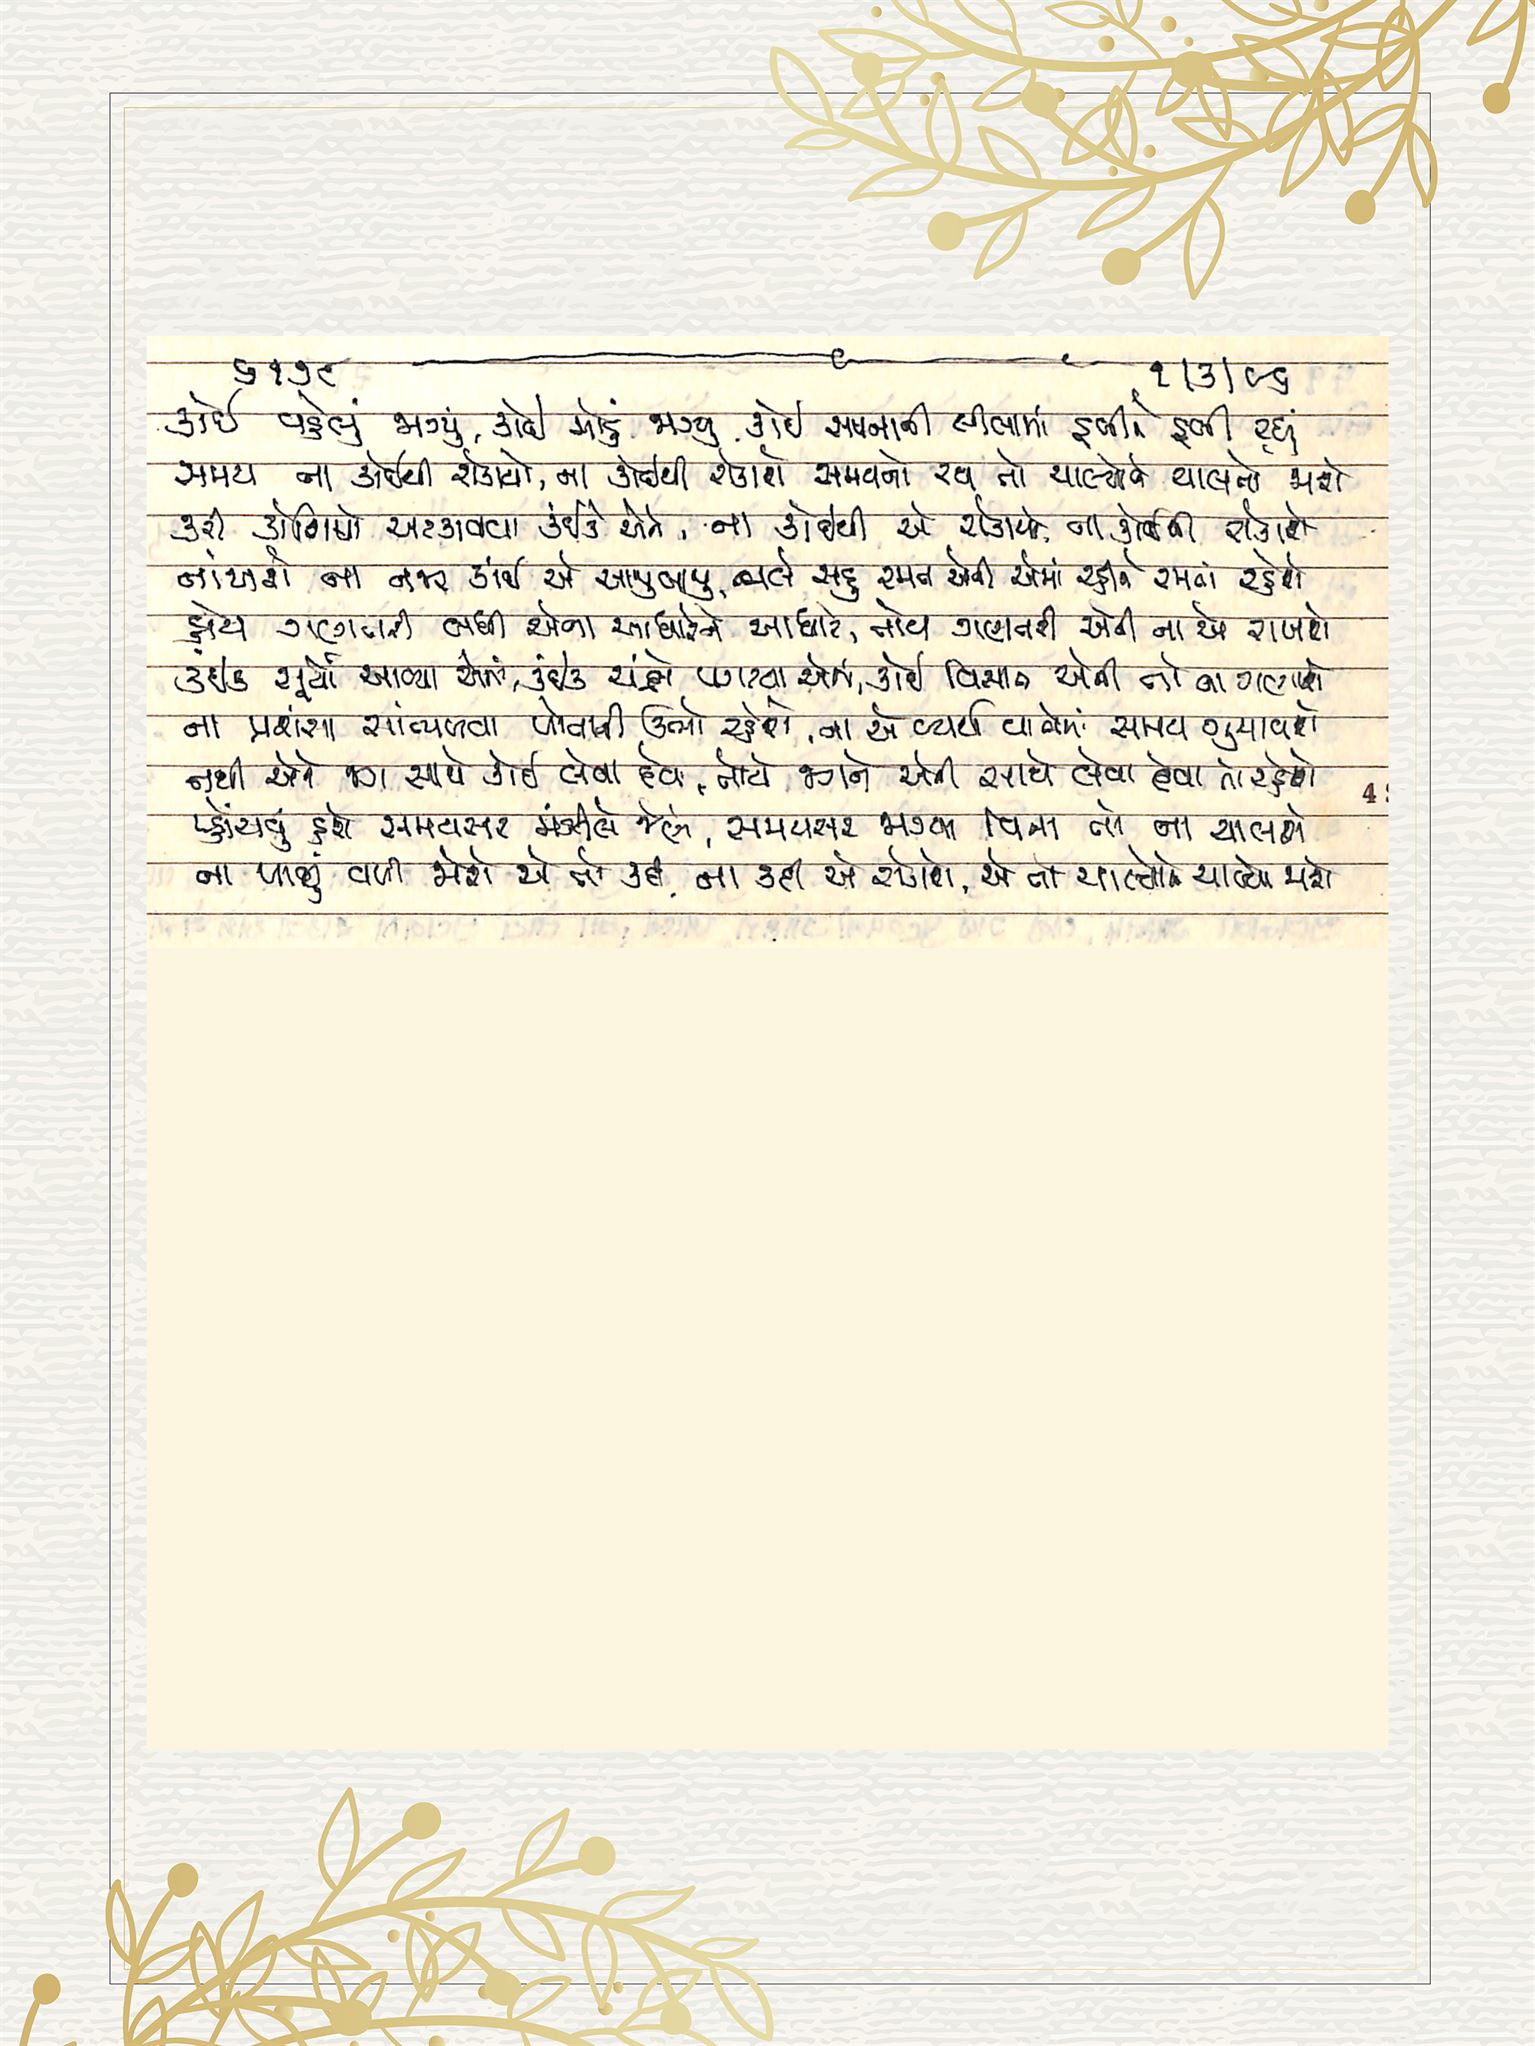 ૬૧૭૯ ૧/૩/૯૬
કોઈ વહેલું જાગ્યું, કોઈ મોડું જાગ્યુ, કોઈ સપનાની લીલામાં ડૂબીને ડૂબી રહ્યું
સમય ના કોઈથી રોકાયો, ના કોઈથી રોકાશે સમયનો રથ તો ચાલ્યોને ચાલતો જાશે
કરી કોશિશો અટકાવવા કંઈકે એને, ના કોઈથી એ રોકાયો, ના કોઈથી રોકાશે
નાંખશે ના નજર કાંઈ એ આજુબાજુ, ભલે સહુ રમત એની એમાં રહીને રમતાં રહેશે
હોય ગણતરી બધી એના આધારેને આધારે, તોય ગણતરી એની ના એ રાખશે
કંઈક સૂર્યો આવ્યા એમાં, કંઈક ચંદ્રો પ્રગટયા એમાં, કોઈ વિસાત એની તો ના ગણાશે
ના પ્રશંસા સાંભળવા પોતાની ઉભો રહેશે, ના એ વ્યર્થ વાતોમાં સમય ગુમાવશે
નથી એને જગ સાથે કોઈ લેવા દેવા, તોયે જગને એની સાથે લેવા દેવા તો રહેશે
પ્હોંચવું હશે સમયસર મંઝીલે જેણે, સમયસર જાગ્યા વિના તો ના ચાલશે
ના પાછું વળી જોશે એ તો કદી, ના કદી એ રોકાશે, એ તો ચાલ્યોને ચાલ્યો જાશે